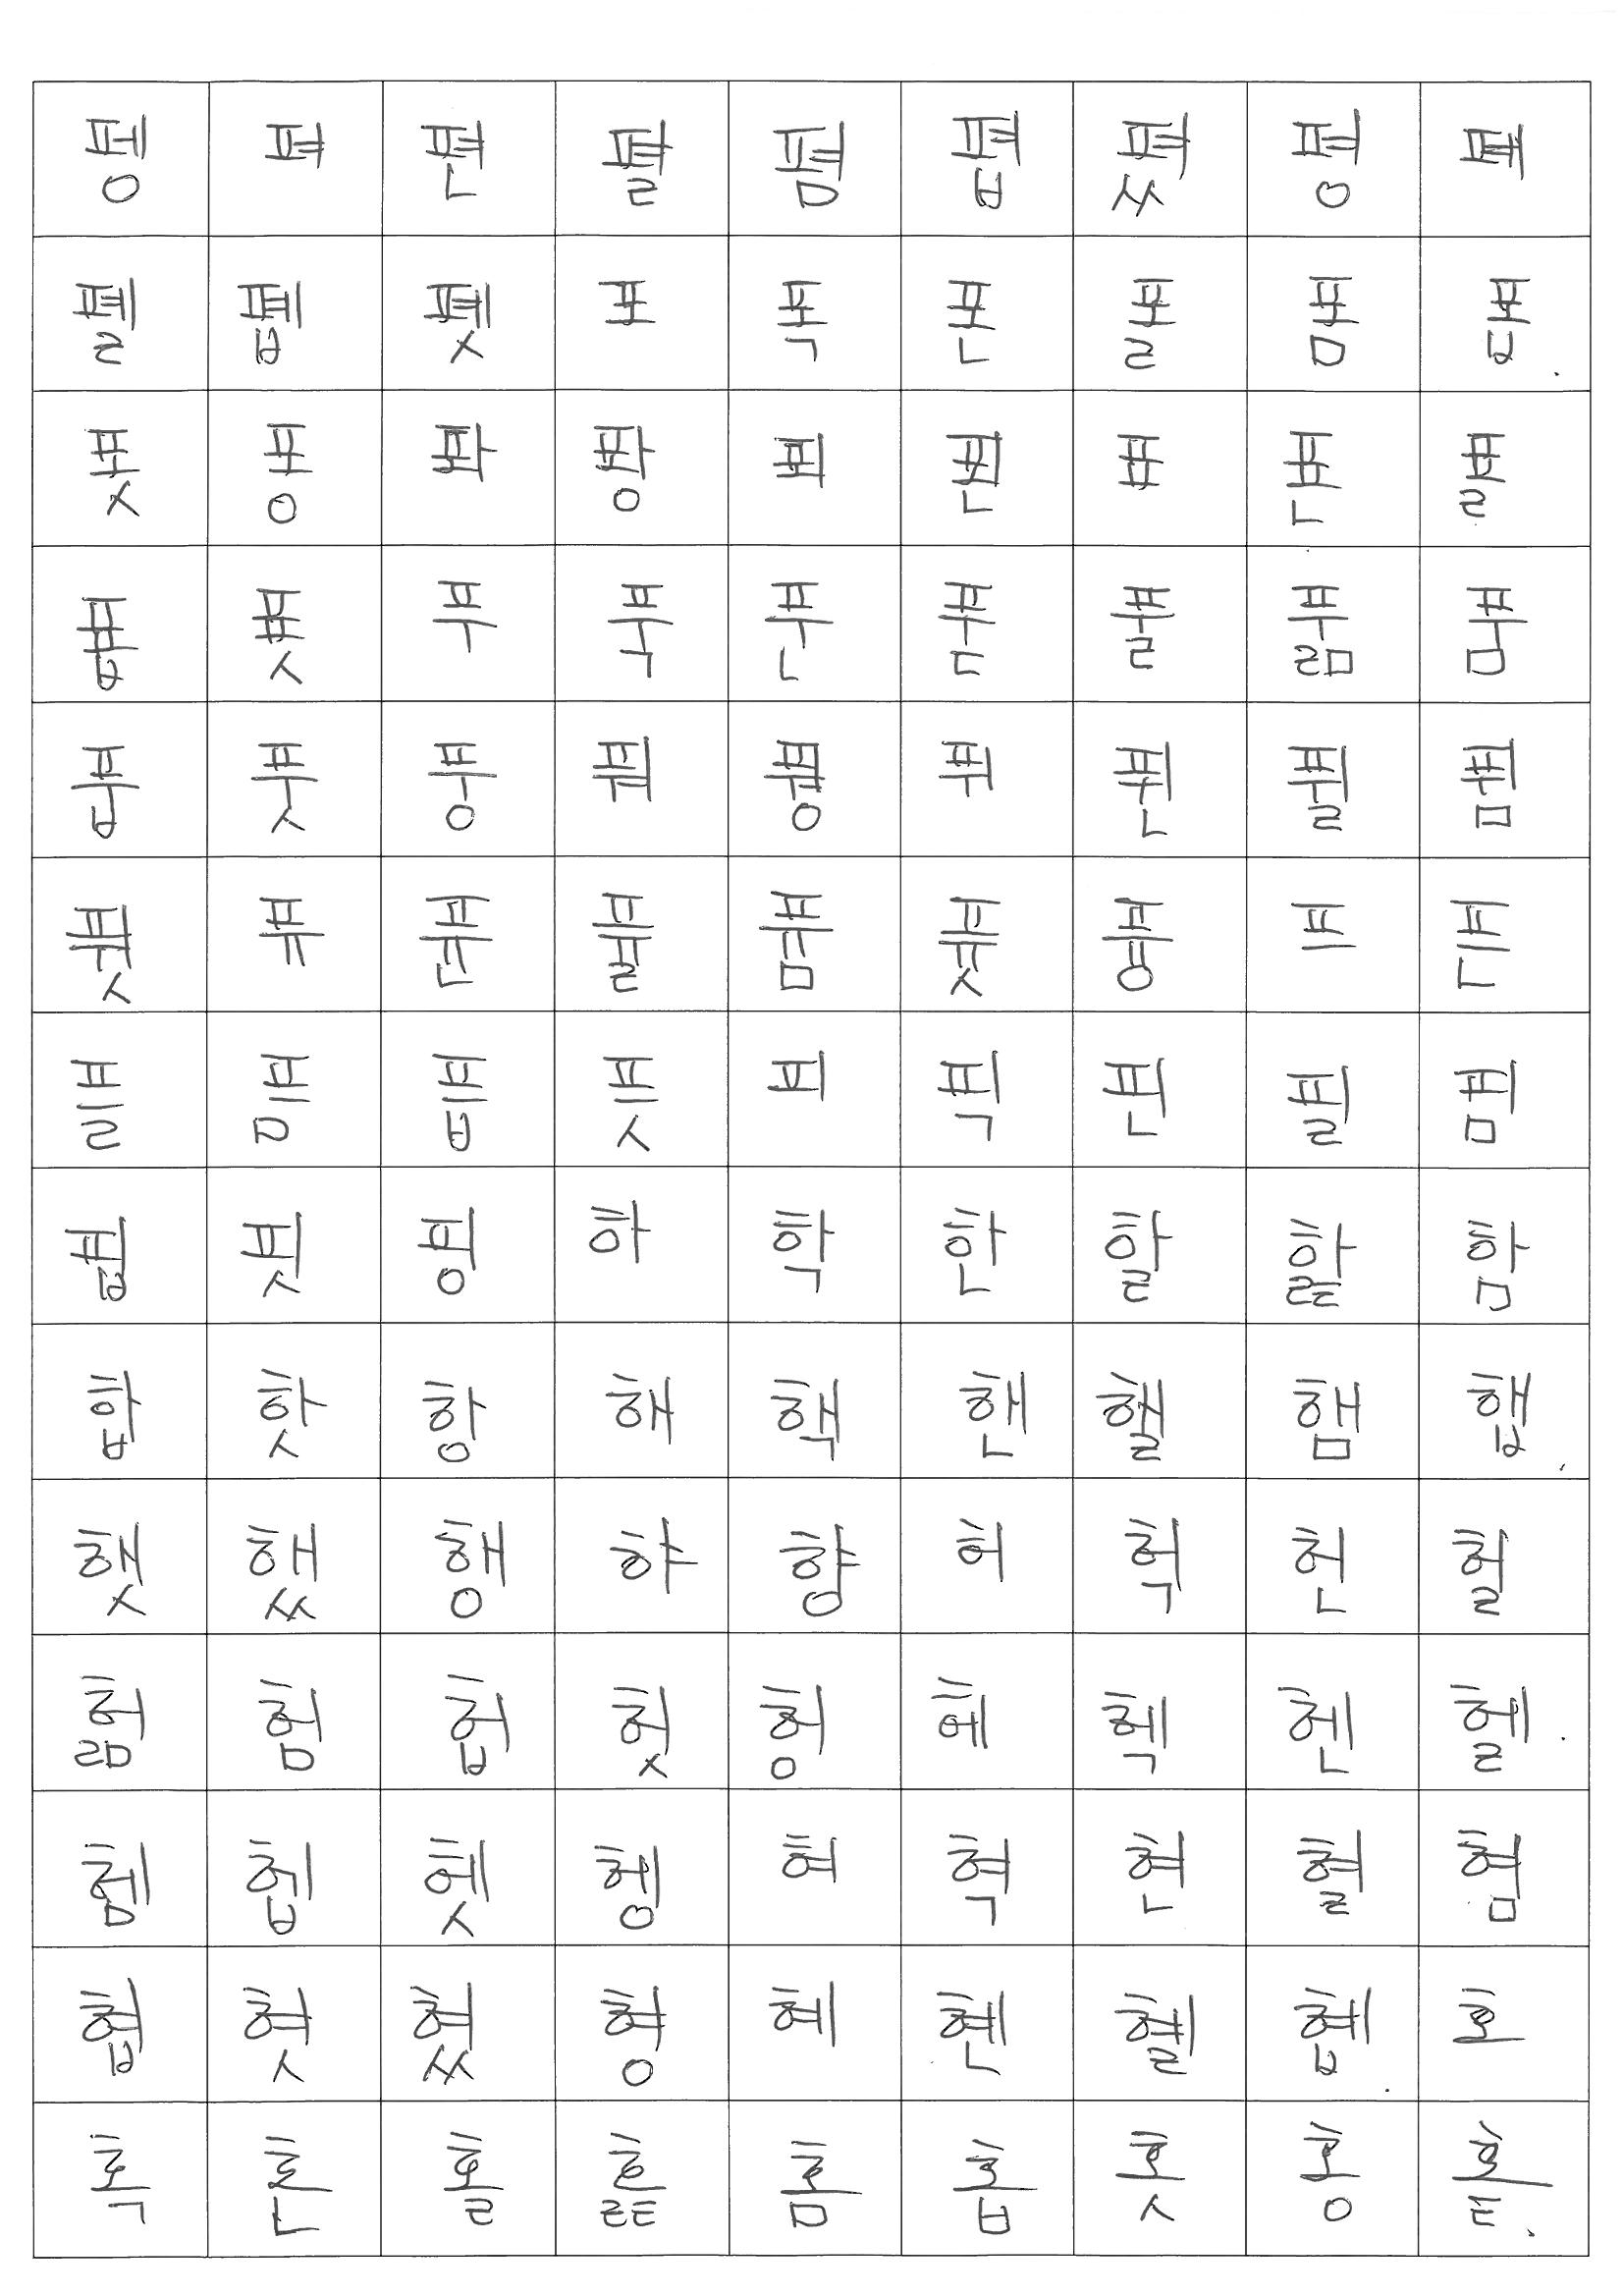 펭 펴 편 펼 폄 폅 폈 평 폐
폘 폡 폣 포 폭 폰 폴 폼 폽
폿 퐁 퐈 퐝 푀 푄 표 푠 푤
푭 푯 푸 푹 푼 푿 풀 풂 품
풉 풋 풍 풔 풩 퓌 퓐 퓔 퓜
퓟 퓨 퓬 퓰 퓸 퓻 퓽 프 픈
플 픔 픕 픗 피 픽 핀 필 핌
핍 핏 핑 하 학 한 할 핥 함
합 핫 항 해 핵 핸 핼 햄 햅
햇 했 행 햐 향 허 헉 헌 헐
헒 험 헙 헛 헝 헤 헥 헨 헬
헴 헵 헷 헹 혀 혁 현 혈 혐
협 혓 혔 형 혜 혠 혤 혭 호
혹 혼 홀 홅 홈 홉 홋 홍 홑